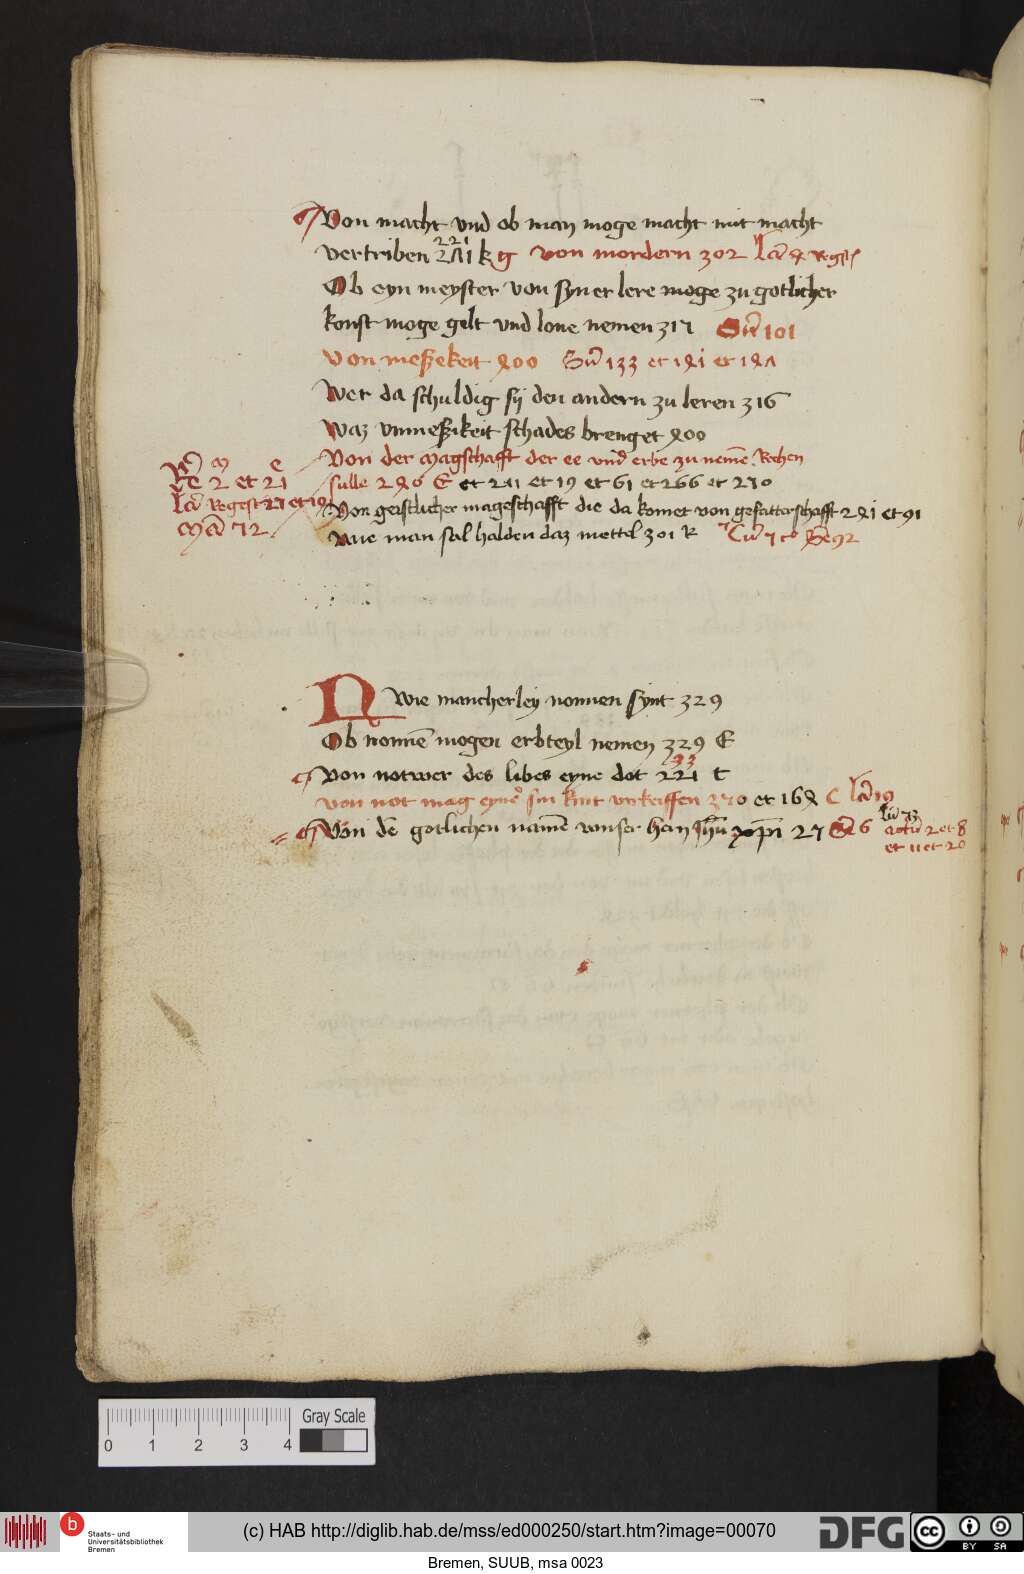 Von macht vnd ob man moge macht mit macht
vertriben 221 k g von mordern 302
Ob eyn meyster von syner lere moge zu gotlicher
konst moge gelt vnd lone nemen 317 101
von meßekeit 400 133 et 141 et
Wer da schuldig sij den andern zu leren 316
Waz vnmeßikeit schades brenget 400
Von der magschafft der ee vnd erbe zu neme Rechen
2 et 21
sulle 240 E et 241 et 19 et 61 et 266 et 270
Regest 27 et 19
Von geistlicher mageschafft die da komet von gefatterschafft 241 et 91
72
Wie man sal halden daz mettel 301 R
N Wie mancherley nonnen synt 329
Ob nonne mogen erbteyl nemen 329 E
33
Von notwer des libes eyne dot 221 t
von not mag eyner sin kint verkeiffen 370 et 164 C 19
Von de gotlichen name vnser hern Jhu xpi 27 6
73
2 et 8
et 11 et 20
0 1 2 3 4
Gray Scale
b Staats- und
Universitätsbibliothek
Bremen
(c) HAB http://diglib.hab.de/mss/ed000250/start.htm?image=00070
DFG
cc BY SA
Bremen, SUUB, msa 0023